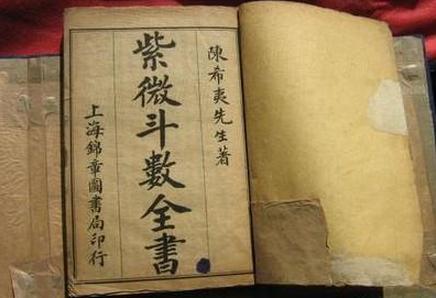 陳希夷先生著
紫微斗數全書
上海錦章圖書局印行